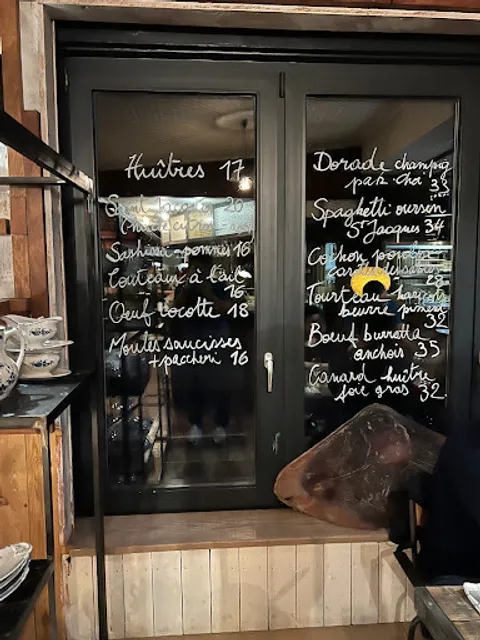 Huîtres 17
Saint Jacques 20
citron
Sashimi pommes 16
Couteaux à l'ail
16
Oeuf cocotte 18
Moules saucisses
+ paccheri 16
Dorade champig
pak choi 33
Spaghetti oursin
St Jacques 34
Cochon
28
Tourteau haricot
beurre piment
32
Boeuf burratta
anchois 35
Canard huître
foie gras 32